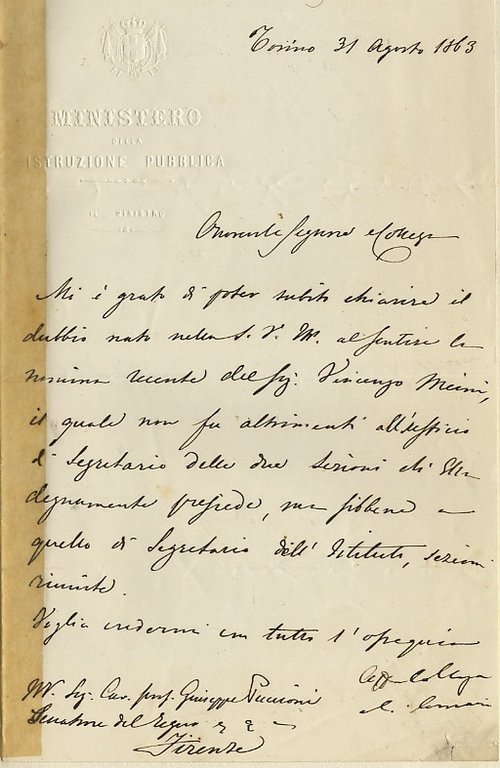 Torino 31 Agosto 1863
MINISTERO
DELLA
ISTRUZIONE PUBBLICA
IL MINISTRO
Onorevole Signore e Collega
Mi è grato di poter subito chiarire il
dubbio nato nella S. V. Ill. al sentire la
nomina recente del Sig. Vincenzo Meini,
il quale non fu altrimenti all'ufficio
di Segretario delle due Sezioni ch'Ella
degnamente presiede, ma sibbene a
quello di Segretario dell'Istituto, sezioni
riunite.
Voglia credermi con tutto l'ossequio
Collega
Ill. Sig. Cav. prof. Giuseppe Puccioni
Senatore del Regno
Firenze